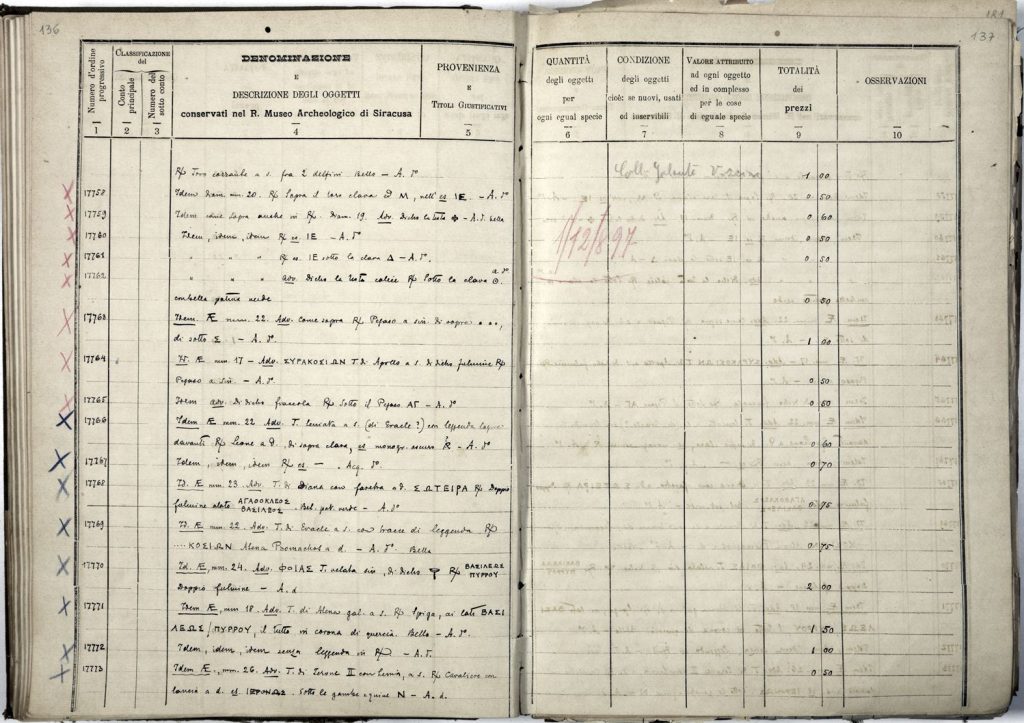 136
Numero d'ordine progressivo
CLASSIFICAZIONE del
Conto principale
Numero del sotto conto
DENOMINAZIONE
E
DESCRIZIONE DEGLI OGGETTI
conservati nel R. Museo Archeologico di Siracusa
PROVENIENZA
E
TITOLI GIUSTIFICATIVI
1 2 3 4 5
Toro cozzante a s. fra 2 delfini Bello — A. d°
17758 Idem Diam. mm. 20. Sopra il toro clava ed M, nell' es IE. — A. d°
17759 Idem come sopra anche in Diam. 19. Adv. Dietro la testa — A. d. bella
17760 Idem, idem, idem es. IE — A. d°
17761 " " " es. IE sotto la clava Δ — A. d°.
17762 " " " adv. Dietro la testa Sotto la clava Θ. a. d°
Bella patina verde
17763 Idem. Æ mm. 22. Adv. Come sopra Pegaso a sin. di sopra
di sotto Σ — A. d°
17764 Id. Æ mm. 17 — Adv. ΣΥΡΑΚΟΣΙΩΝ T. di Apollo a s. di dietro fulmine
Pegaso a sin. — A. d°
17765 Idem adv. Di dietro Sotto il Pegaso ΑΓ — A. d°
17766 Idem Æ mm. 22 Adv. T. laureata a s. (di Eracle ?) con leggenda
davanti Leone a d. di sopra clava, es monogr. oscuro — A. d°
17767 Idem, idem, idem es. — . Acq. d°.
17768 Id. Æ mm. 23. Adv. T. di Diana con faretra a d. ΣΩΤΕΙΡΑ Doppio
fulmine alato ΑΓΑΘΟΚΛΕΟΣ ΒΑΣΙΛΕΟΣ. Bel. pat. verde — A. d°
17769 Id. Æ mm. 22. Adv. T. di Eracle a s. con tracce di leggenda
.... ΚΟΣΙΩΝ Atena Promachos a d. — A. d°. Bella
17770 Id. Æ, mm. 24. Adv. ΦΘΙΑΣ T. velata sin. di dietro ΒΑΣΙΛΕΩΣ ΠΥΡΡΟΥ
Doppio fulmine — A. d
17771 Idem Æ, mm 18. Adv. T. di Atena gal. a s. Spiga, ai lati ΒΑΣΙ
ΛΕΩΣ / ΠΥΡΡΟΥ, il tutto in corona di quercia. Bello — A. d°.
17772 Idem, idem, idem senza leggenda in — A. d.
17773 Idem Æ., mm. 26. Adv. T. di Ierone II con tenia, a s. Cavaliere con
lancia a d. es. ΙΕΡΩΝΟΣ. Sotto le gambe equine N — A. d.
181
137
QUANTITÀ
degli oggetti
per
ogni egual specie
CONDIZIONE
degli oggetti
cioè: se nuovi, usati
od inservibili
VALORE ATTRIBUITO
ad ogni oggetto
ed in complesso
per le cose
di eguale specie
TOTALITÀ
dei
prezzi
OSSERVAZIONI
6 7 8 9 10
1 00
0 50
0 60
0 50
1/12/8 97
0 50
0 50
1 00
0 50
0 50
0 60
0 70
0 75
0 75
2 00
1 50
1 00
0 50